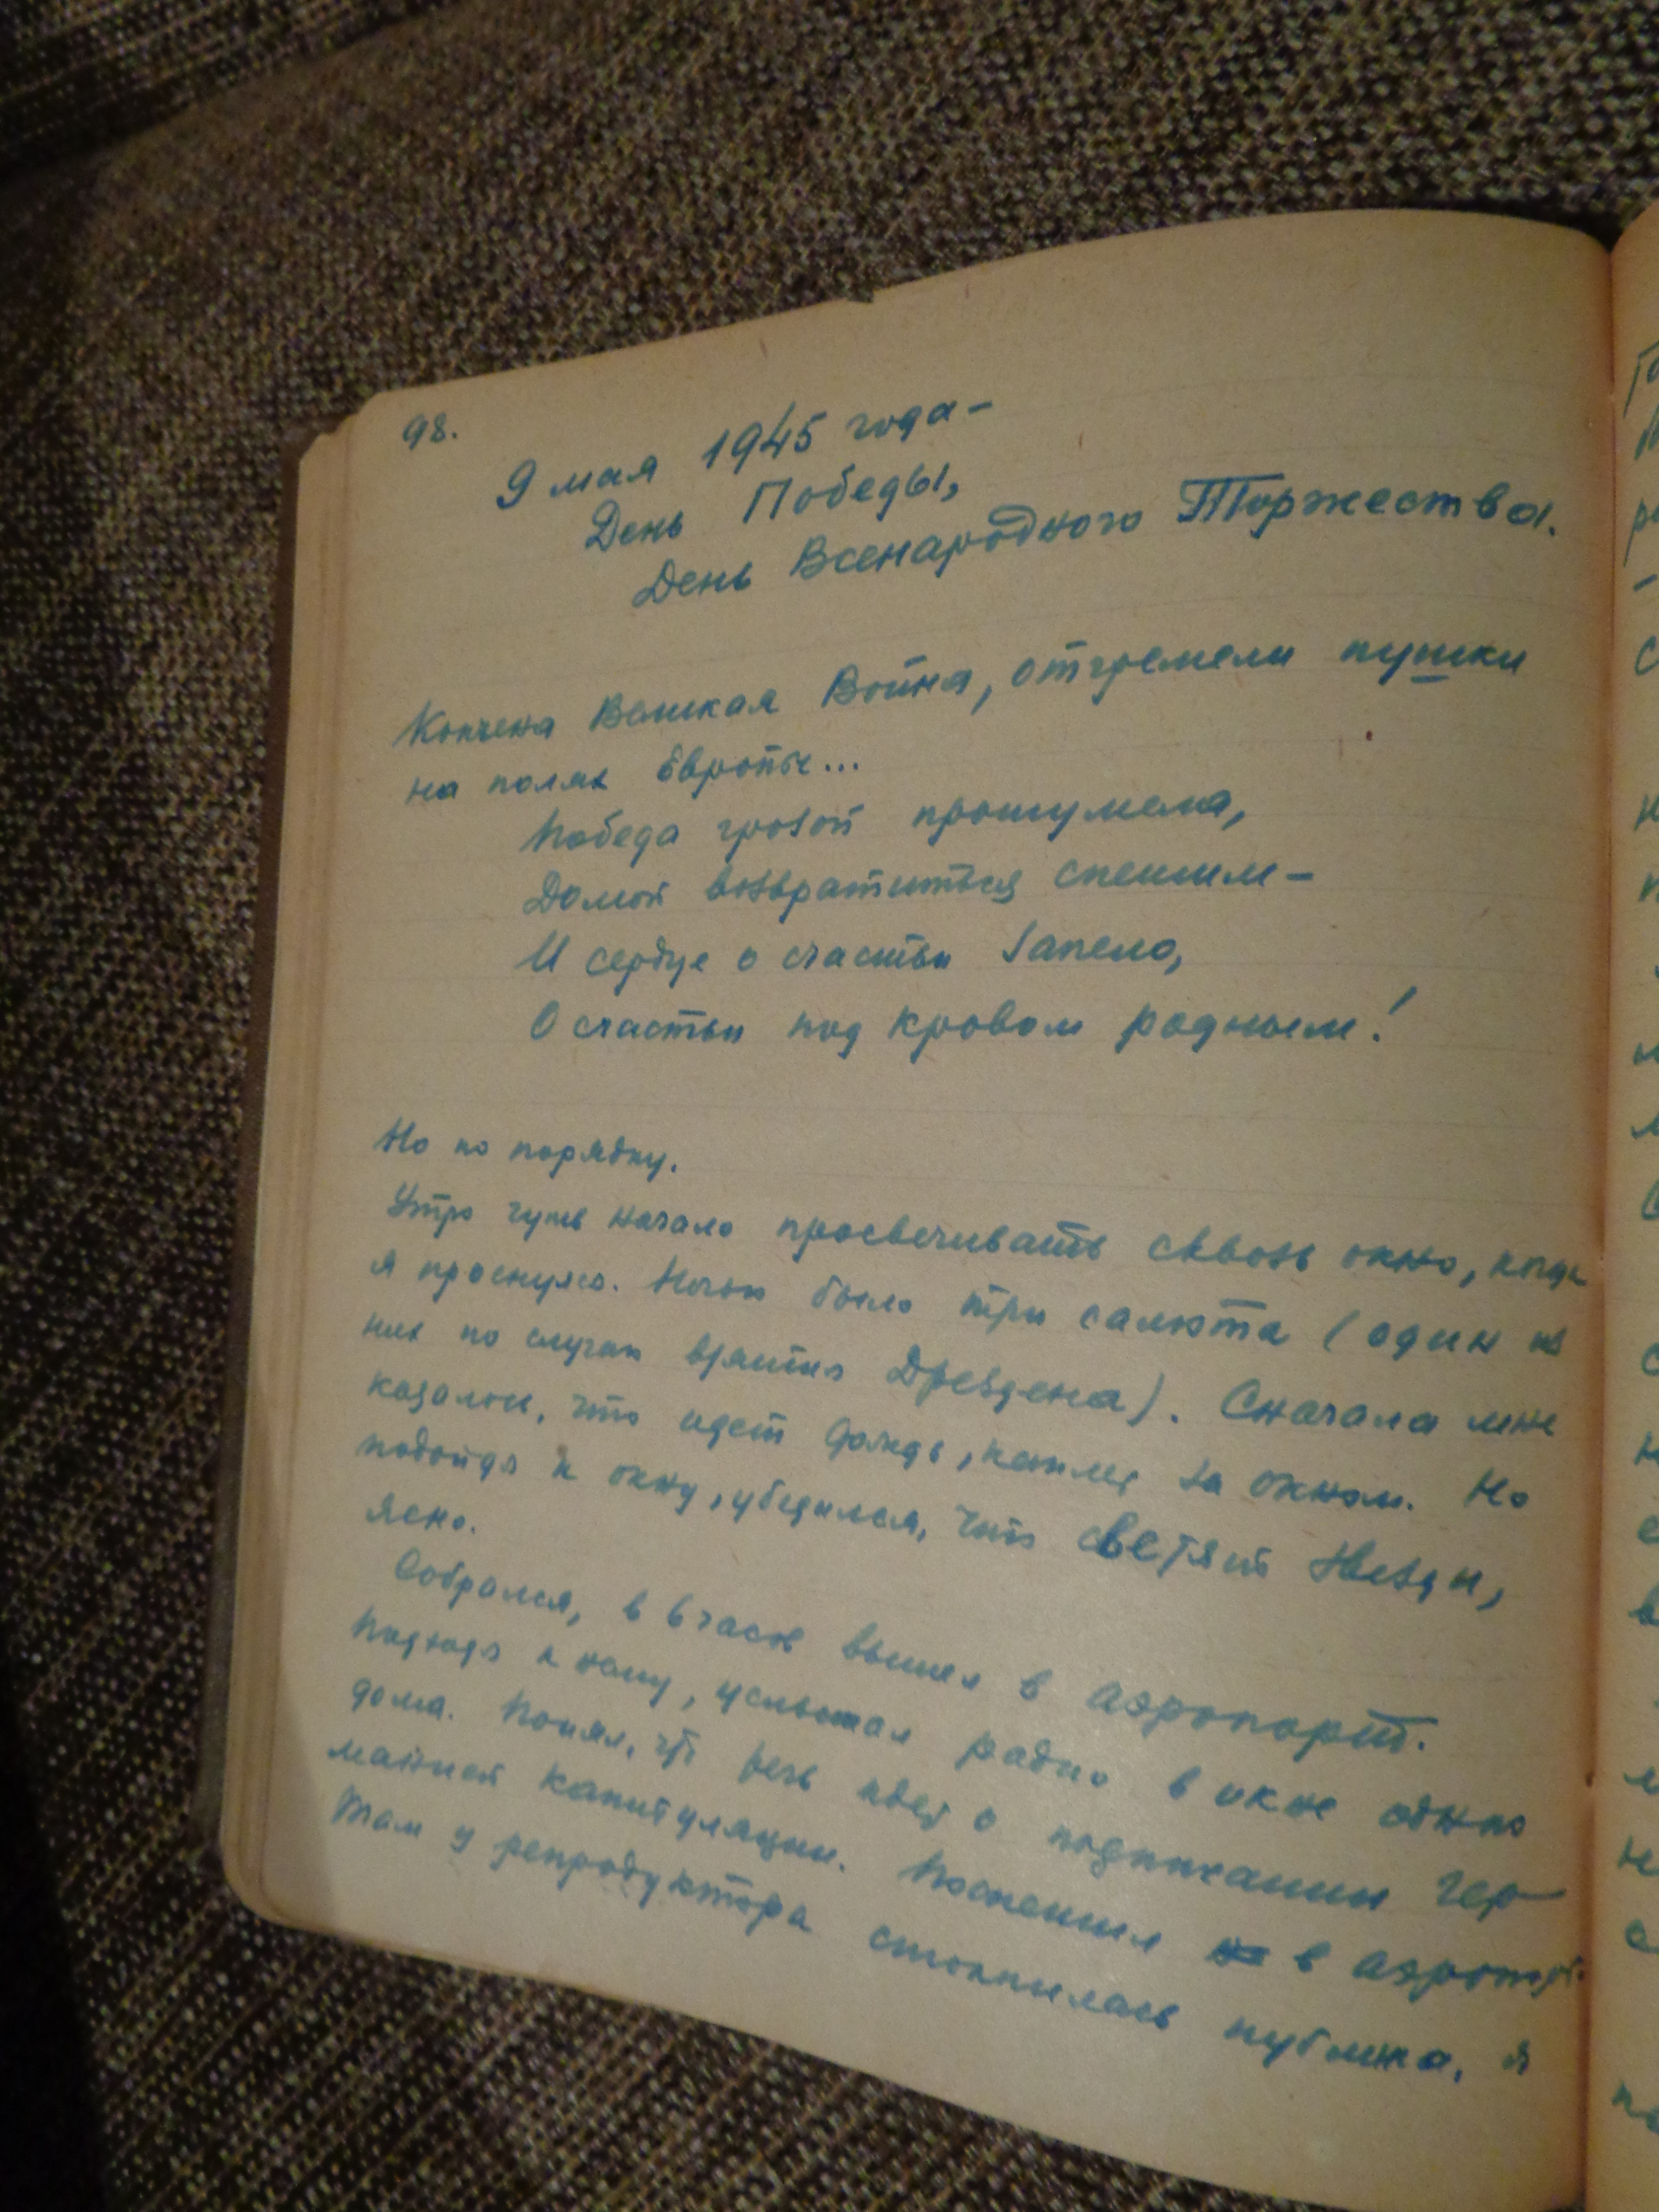 98.
9 мая 1945 года –
День Победы,
День Всенародного Торжества.
Кончена Великая Война, отгремели пушки
на полях Европы...
Победа грозой прошумела,
Домой возвратиться спешим –
И сердце о счастьи запело,
О счастьи под кровом родным!
Но по порядку.
Утро чуть начало просвечивать сквозь окно, когда
я проснулся. Ночью было три салюта (один из
них по случаю взятия Дрездена). Сначала мне
казалось, что идет дождь, капли за окном. Но
подойдя к окну, убедился, что светят звезды,
ясно.
Собрался, в 6 часов вышел в аэропорт.
Подходя к нему, услышал радио в окне одного
дома. Понял, что речь идет о подписании гер-
манией капитуляции. Поспешил в аэропорт.
Там у репродуктора столпилась публика, я